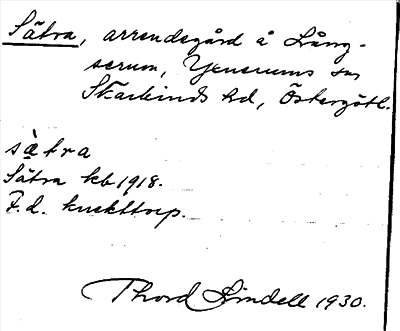 Sätra, arrendegård å Lång-
serum, Yxnerums sn
Skärkinds hd, Östergötl.
sàtra
Sätra kb 1918.
F.d. knekttorp.
Thord Lindell 1930.